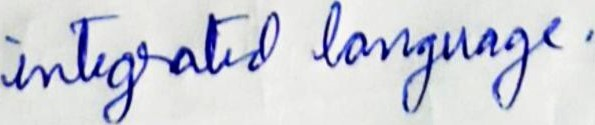 integrated language.